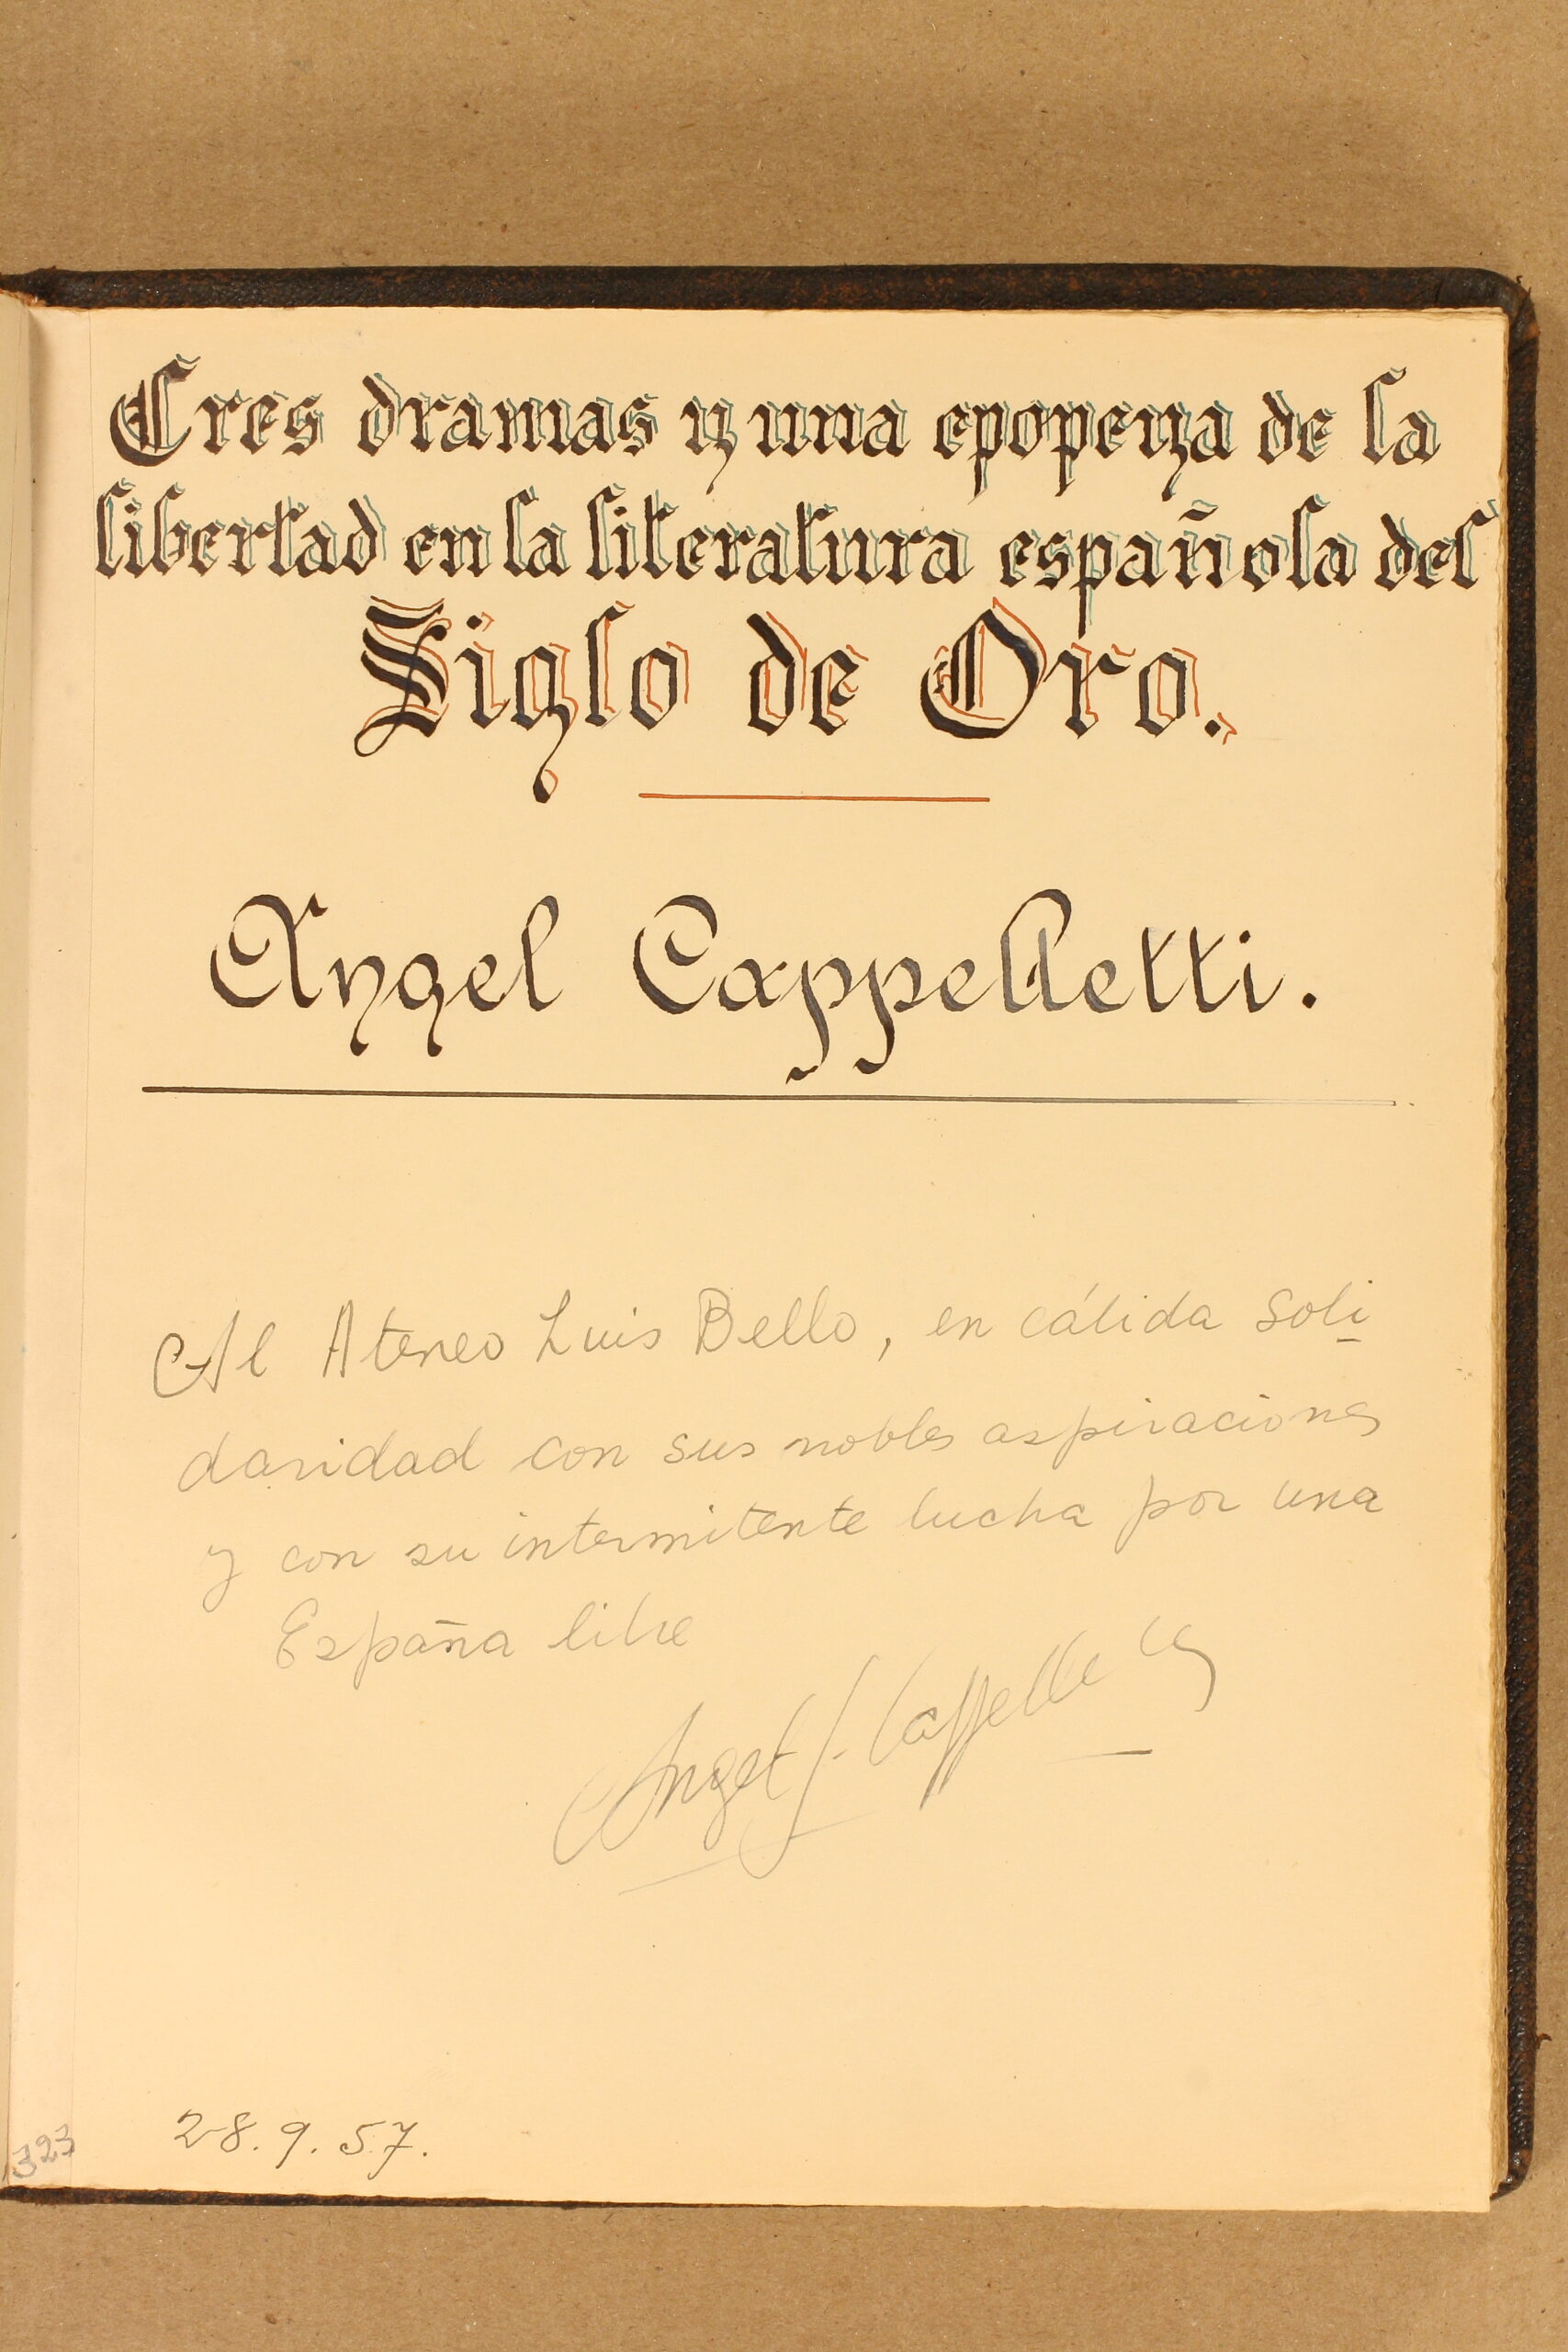 Tres dramas y una epopeya de la
libertad en la literatura española del
Siglo de Oro.
Angel Cappelletti.
Al Ateneo Luis Bello, en cálida soli
daridad con sus nobles aspiraciones
y con su intermitente lucha por una
España libre
Angel J. Cappelletti
28.9.57.
323